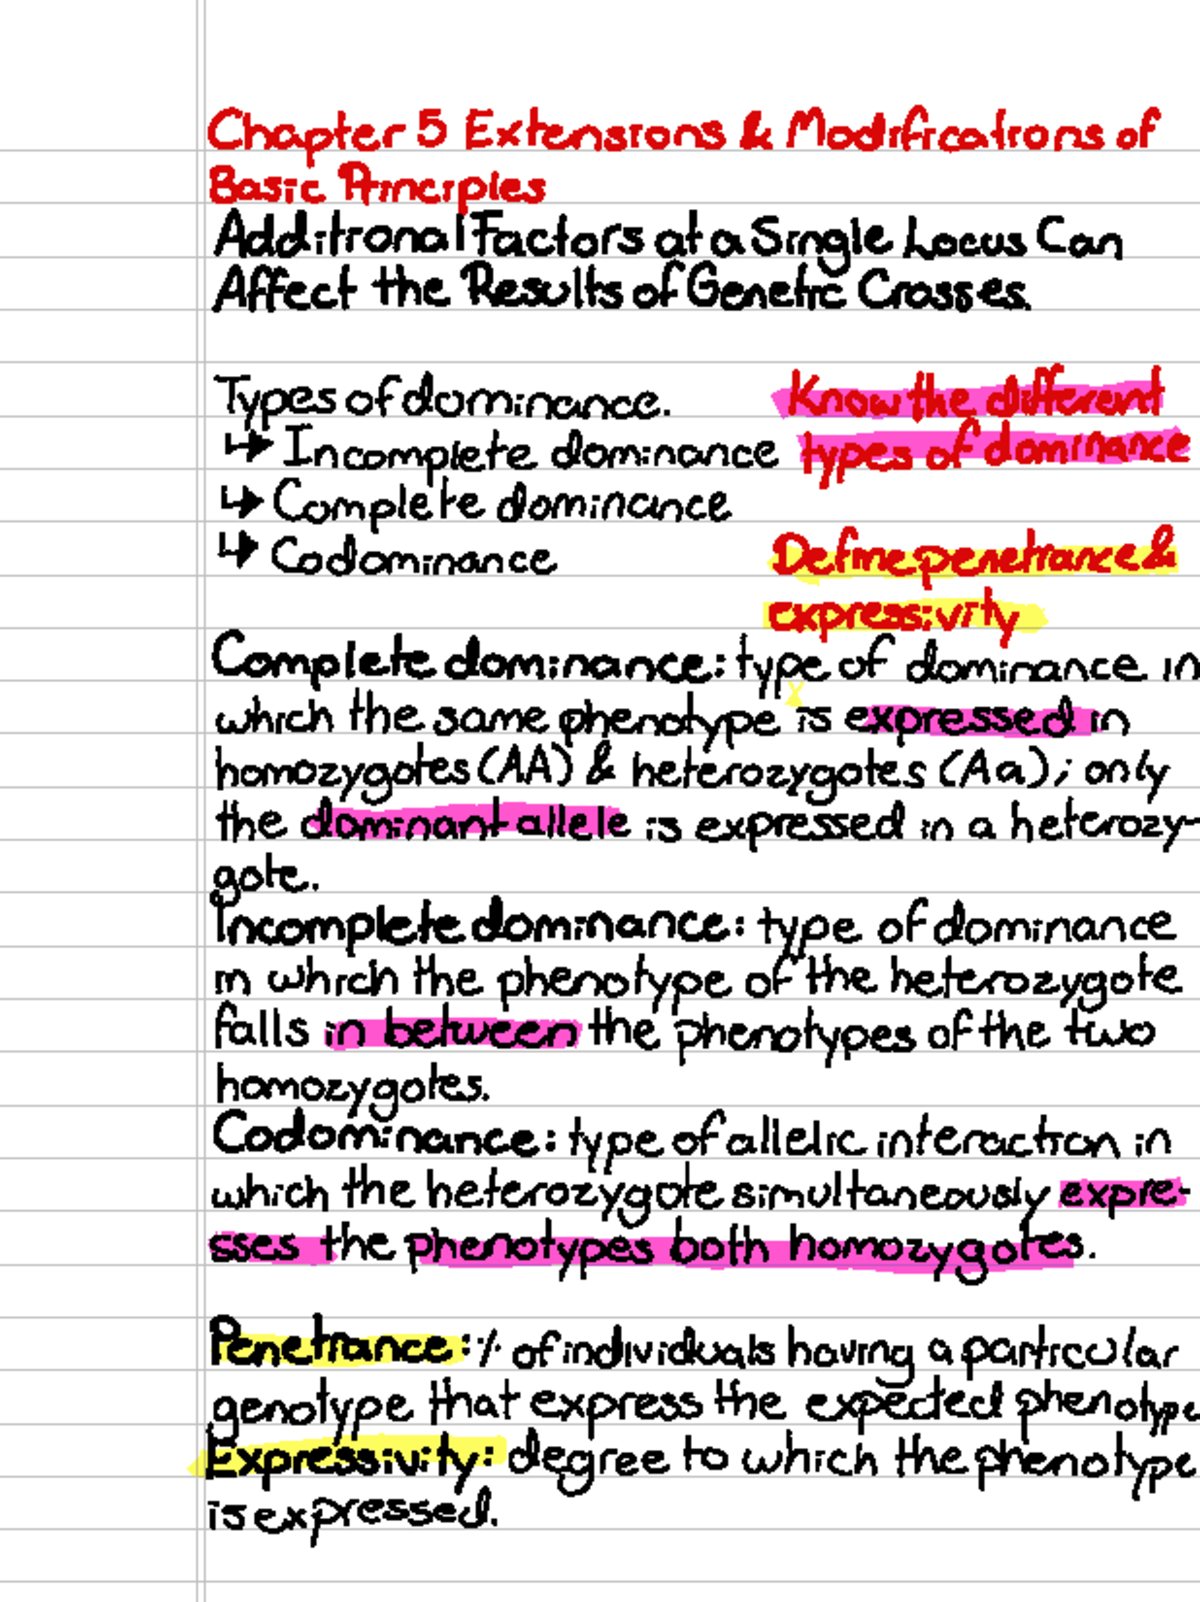 Chapter 5 Extensions & Modifications of
Basic Principles
Additional Factors at a Single Locus Can
Affect the Results of Genetic Crosses.
Types of dominance. Know the different
↳ Incomplete dominance types of dominance
↳ Complete dominance
↳ Codominance Define penetrance &
expressivity
Complete dominance: type of dominance in
which the same phenotype is expressed in
homozygotes (AA) & heterozygotes (Aa); only
the dominant allele is expressed in a heterozy-
gote.
Incomplete dominance: type of dominance
in which the phenotype of the heterozygote
falls in between the phenotypes of the two
homozygotes.
Codominance: type of allelic interaction in
which the heterozygote simultaneously expre-
sses the phenotypes both homozygotes.
Penetrance: % of individuals having a particular
genotype that express the expected phenotype
Expressivity: degree to which the phenotype
is expressed.